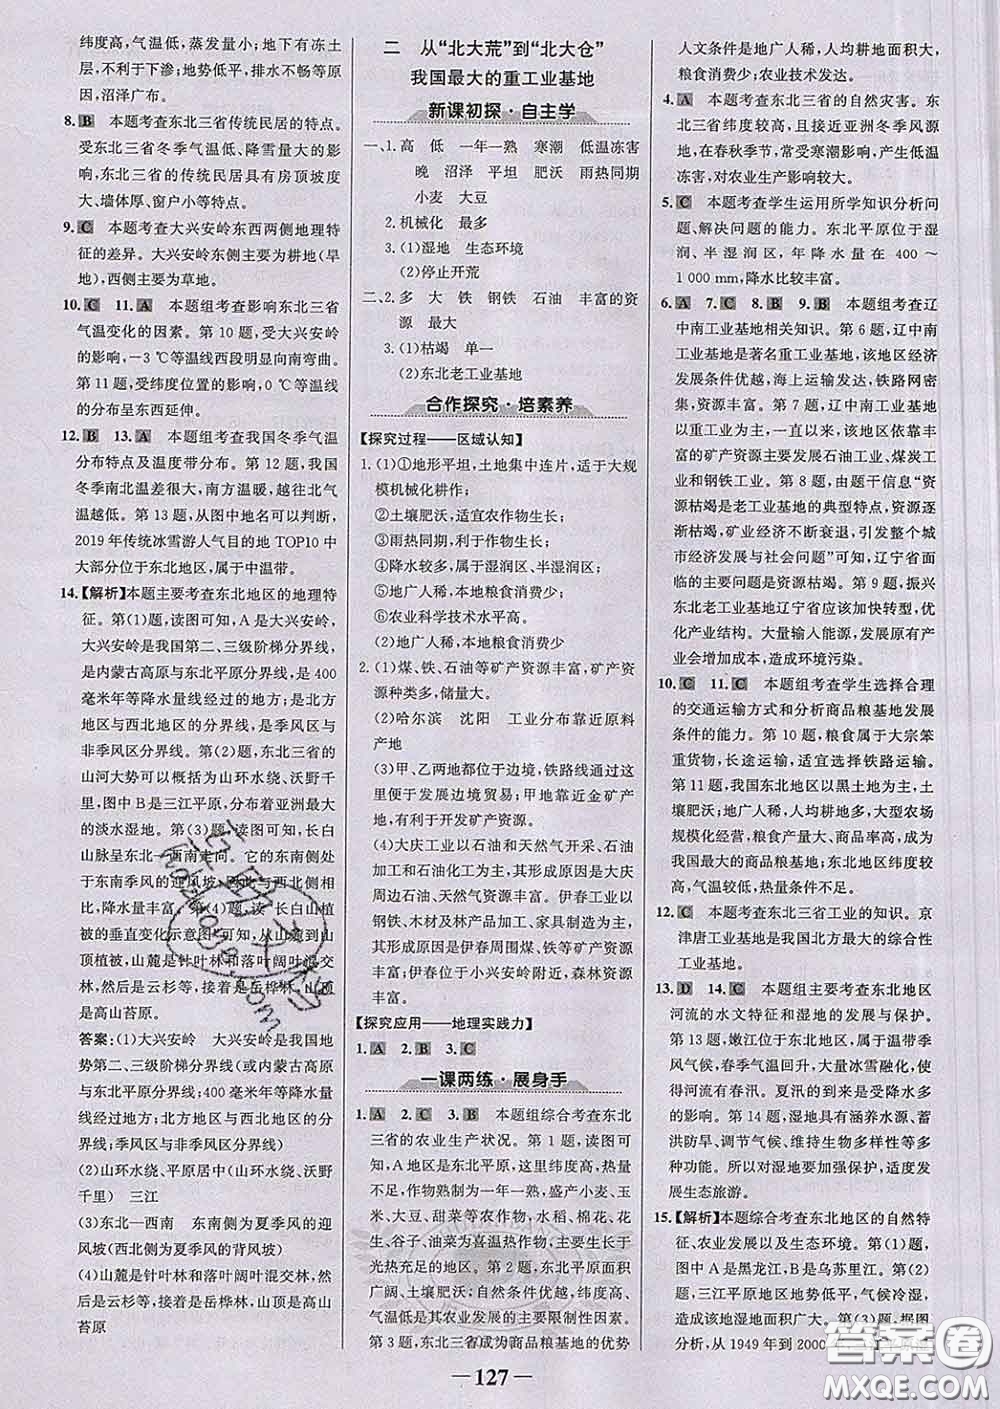 纬度高,气温低,蒸发量小;地下有冻土
层,不利于下渗;地势低平,排水不畅,
沼泽广布。
8. B 本题考查东北三省传统民居的特点。
受东北三省冬季气温低、降雪量大的影
响,东北三省的传统民居具有房顶坡度
大、墙体厚、窗户小等特点。
9. C 本题考查大兴安岭东西两侧地理特
征的差异。大兴安岭东侧主要为耕地(旱
地),西侧主要为草地。
10. C 11. A 本题组考查影响东北三省
气温变化的因素。第 10 题,受大兴安岭
的影响,-3 ℃等温线西段明显向南弯曲。
第 11 题,受纬度位置的影响,0 ℃等温线
的分布呈东西延伸。
12. B 13. A 本题组考查我国冬季气温
分布特点及温度带分布。第 12 题,我国
冬季南北温差很大,南方温暖,越往北气
温越低。第 13 题,从图中地名可以判断,
2019 年传统冰雪游人气目的地 TOP10 中
大部分位于东北地区,属于中温带。
14.【解析】本题主要考查东北地区的地理特
征。第(1)题,读图可知,A是大兴安岭,
大兴安岭是我国第二、三级阶梯分界线,
是内蒙古高原与东北平原分界线,是400
毫米年等降水量线经过的地方;是北方
地区与西北地区的分界线,是季风区与
非季风区分界线。第(2)题,东北三省的
山河大势可以概括为山环水绕、沃野千
里,图中B是三江平原,分布着亚洲最大
的淡水湿地。第(3)题,读图可知,长白
山脉呈东北—西南走向。它的东南侧处
于东南季风的迎风坡,西北侧处于背风
坡,降水量丰富。第(4)题,读“长白山植
被的垂直变化示意图”可知,从山麓到山
顶植被,山麓是针叶林和落叶阔叶混交
林,然后是云杉等,接着是岳桦林,山顶
是高山苔原。
答案:(1)大兴安岭 大兴安岭是我国地
势第二、三级阶梯分界线(或内蒙古高原与
东北平原分界线;400 毫米年等降水量
线经过的地方;北方地区与西北地区的分
界线;季风区与非季风区分界线)
(2)山环水绕、平原居中(山环水绕、沃野
千里) 三江
(3)东北—西南 东南侧为夏季风的迎风
坡(西北侧为夏季风的背风坡)
(4)山麓是针叶林和落叶阔叶混交林,然后
是云杉等,接着是岳桦林,山顶是高山
苔原
二 从“北大荒”到“北大仓”
我国最大的重工业基地
新课初探·自主学
一、1. 高 低 一年一熟 寒潮 低温冻害
晚 沼泽 平坦 肥沃 雨热同期
小麦 大豆
2. 机械化 最多
3. (1)湿地 生态环境
(2)停止开荒
二、2. 多 大 铁 钢铁 石油 丰富的资
源 最大
3. (1)枯竭 单一
(2)东北老工业基地
合作探究·培素养
【探究过程——区域认知】
1. (1)①地形平坦,土地集中连片,适于大规
模机械化耕作;
②土壤肥沃,适宜农作物生长;
③雨热同期,利于作物生长;
④降水较多,属于湿润区、半湿润区;
⑤地广人稀,后备土地资源充足;
⑥农业科学技术水平高。
(2)地广人稀,本地粮食消费少
2. (1)煤、铁、石油等矿产资源丰富,矿产资
源种类多,储量大。
(2)哈尔滨 沈阳 工业分布靠近原料
产地
(3)甲、乙两地都位于边境,铁路线通过
便于发展边境贸易;甲地靠近金矿产地,
有利于开发矿产资源。
(4)大庆工业以石油和天然气开采、石油
加工和石油化工为主,其形成原因是大庆
周边石油、天然气资源丰富;伊春工业以
钢铁、木材及林产品加工、家具制造为主,
其形成原因是伊春周围煤、铁等矿产资源
丰富;伊春位于小兴安岭附近,森林资源
丰富。
【探究应用——地理实践力】
1. A 2. B 3. C
一课两练·展身手
1. A 2. C 3. B 本题组综合考查东北
三省的农业生产状况。第 1 题,读图可
知,A地区是东北平原,这里纬度高,热量
不足,作物熟制为一年一熟,盛产小麦、玉
米、大豆、甜菜等农作物,水稻、棉花、花
生、谷子、油菜为喜温热作物,主要生长于
光热充足的地区。第 2 题,东北平原面积
广阔、土壤肥沃;自然条件优越,纬度高、
气温低是其农业发展的主要限制性因素。
第 3 题,东北三省成为商品粮基地的优势
人文条件是地广人稀,人均耕地面积大,
粮食消费少;农业技术发达。
4. A 本题考查东北三省的自然灾害。东
北纬度较高,且接近亚洲冬季风源
地,在春秋季节,常出现寒潮,产生低温
冻害,对农业生产影响较大。
5. C 本题考查学生运用所学知识分析问
题、解决问题的能力。东北平原位于湿
润、半湿润区,年降水量在 400 ~
1 000 mm,降水比较丰富。
6. A 7. C 8. B 9. B 本题组考查辽
中南工业基地相关知识。第 6 题,辽中南
工业基地是著名重工业基地,该地区经济
发展条件优越,海上运输发达,铁路网密
集,资源丰富。第 7 题,辽中南工业基地
以重工业为主,一直以来,该地区依靠丰
富的矿产资源发展石油工业、煤炭工业
和钢铁工业。第 8 题,由题干信息“资源
枯竭是老工业基地的典型特点,资源逐
渐枯竭,矿业经济不断衰退,引发整个城
市经济发展与社会问题”可知,辽宁省面
临的主要发展问题是资源枯竭。第 9 题,振兴
东北老工业基地辽宁省应该加快转型,优
化产业结构。大量输入能源,发展原有产
业会增加成本,造成环境污染。
10. C 11. C 本题组考查学生选择合理
的交通运输方式和分析商品粮基地发展
条件的能力。第 10 题,粮食属于大宗笨
重货物,长途运输,适宜选择铁路运输。
第 11 题,我国东北地区以黑土地为主,土
壤肥沃;地广人稀,人均耕地多,大型农场
规模化经营,粮食产量大、商品率高,成为
我国最大的商品粮基地;东北地区纬度较
高,气温较低,热量条件不足。
12. C 本题考查东北三省工业的知识。京
津唐工业基地是我国北方最大的综合性
工业基地。
13. D 14. C 本题组主要考查东北地区
河流的水文特征和湿地的发展与保护。
第 13 题,嫩江位于东北地区,属于温带季
风气候,纬度高,冬季气温低,积雪量大,
河流有春汛。夏汛的到来是受降水较多
的影响。第 14 题,湿地具有涵养水源、蓄
洪防旱、调节气候、维持生物多样性等多
种作用。所以对湿地要加强保护,适度发
展生态旅游。
15.【解析】本题综合考查东北地区的自然特
征、农业发展以及生态环境。第(1)题,
图中A是黑龙江,B是乌苏里江。第(2)
题,三江平原地区地势低平,气候冷湿,造
成湿地面积广大。第(3)题,根据图
分析,从 1949 年到 2000
— 127 —
答案圈
MXQE.COM